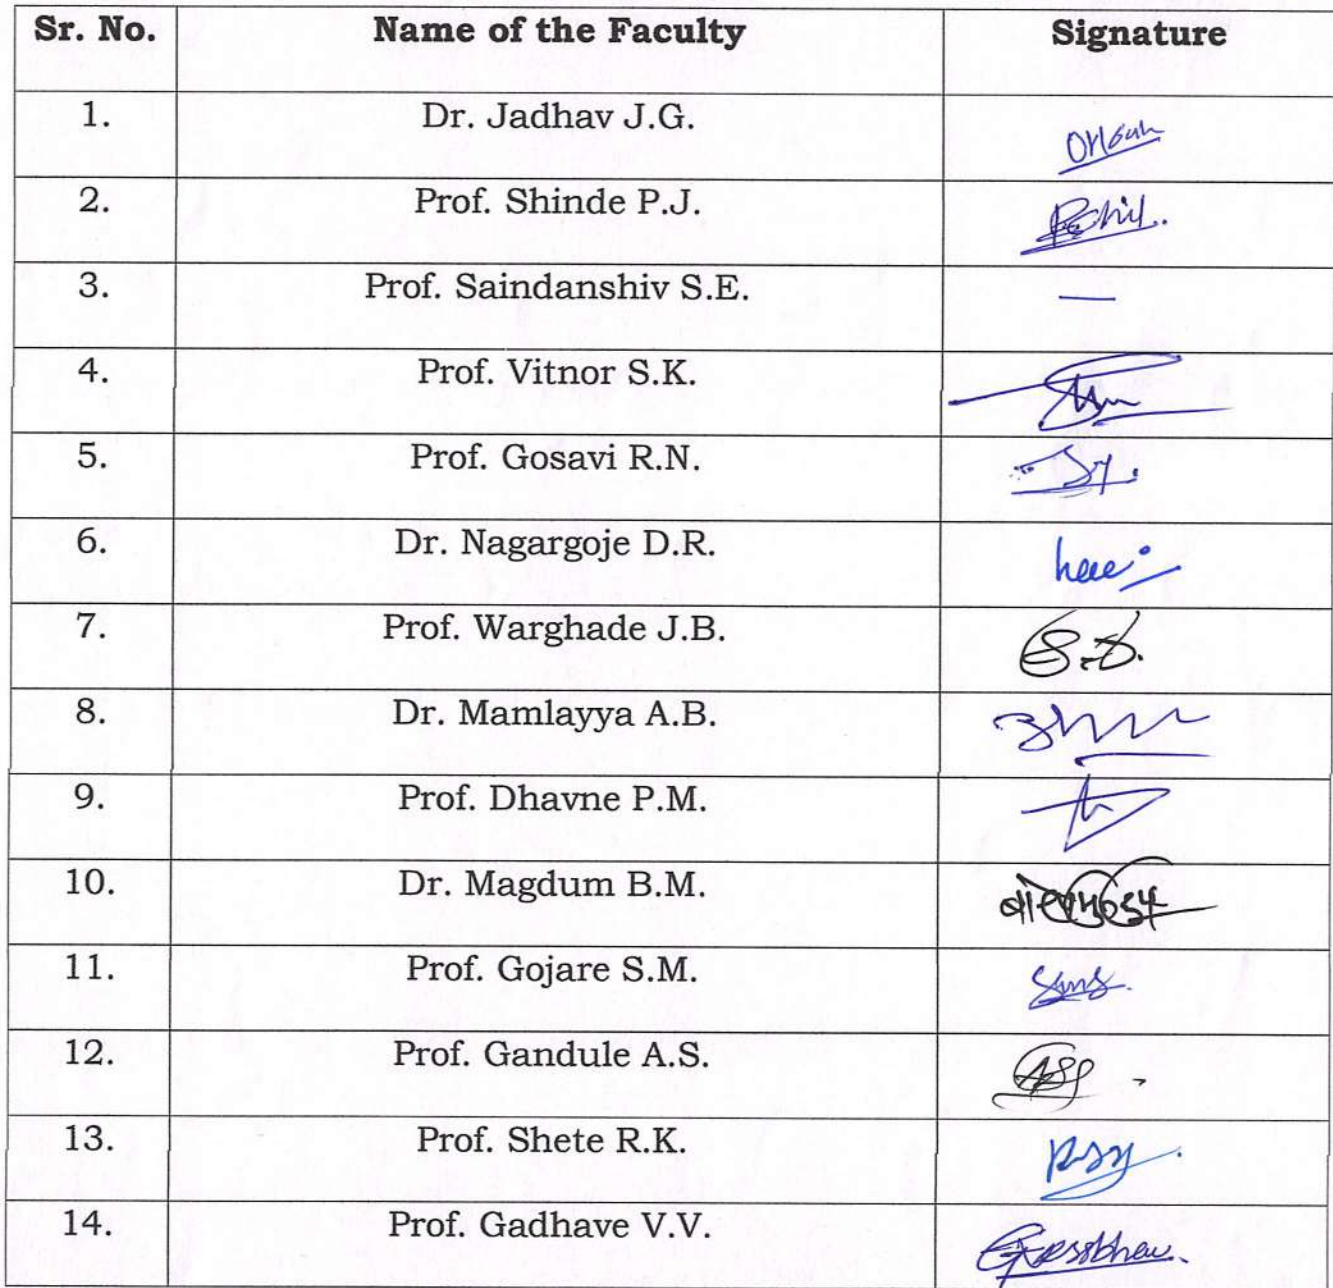 Sr. No. Name of the Faculty Signature
1. Dr. Jadhav J.G.
2. Prof. Shinde P.J.
3. Prof. Saindanshiv S.E. —
4. Prof. Vitnor S.K.
5. Prof. Gosavi R.N.
6. Dr. Nagargoje D.R.
7. Prof. Warghade J.B.
8. Dr. Mamlayya A.B.
9. Prof. Dhavne P.M.
10. Dr. Magdum B.M.
11. Prof. Gojare S.M.
12. Prof. Gandule A.S.
13. Prof. Shete R.K.
14. Prof. Gadhave V.V.